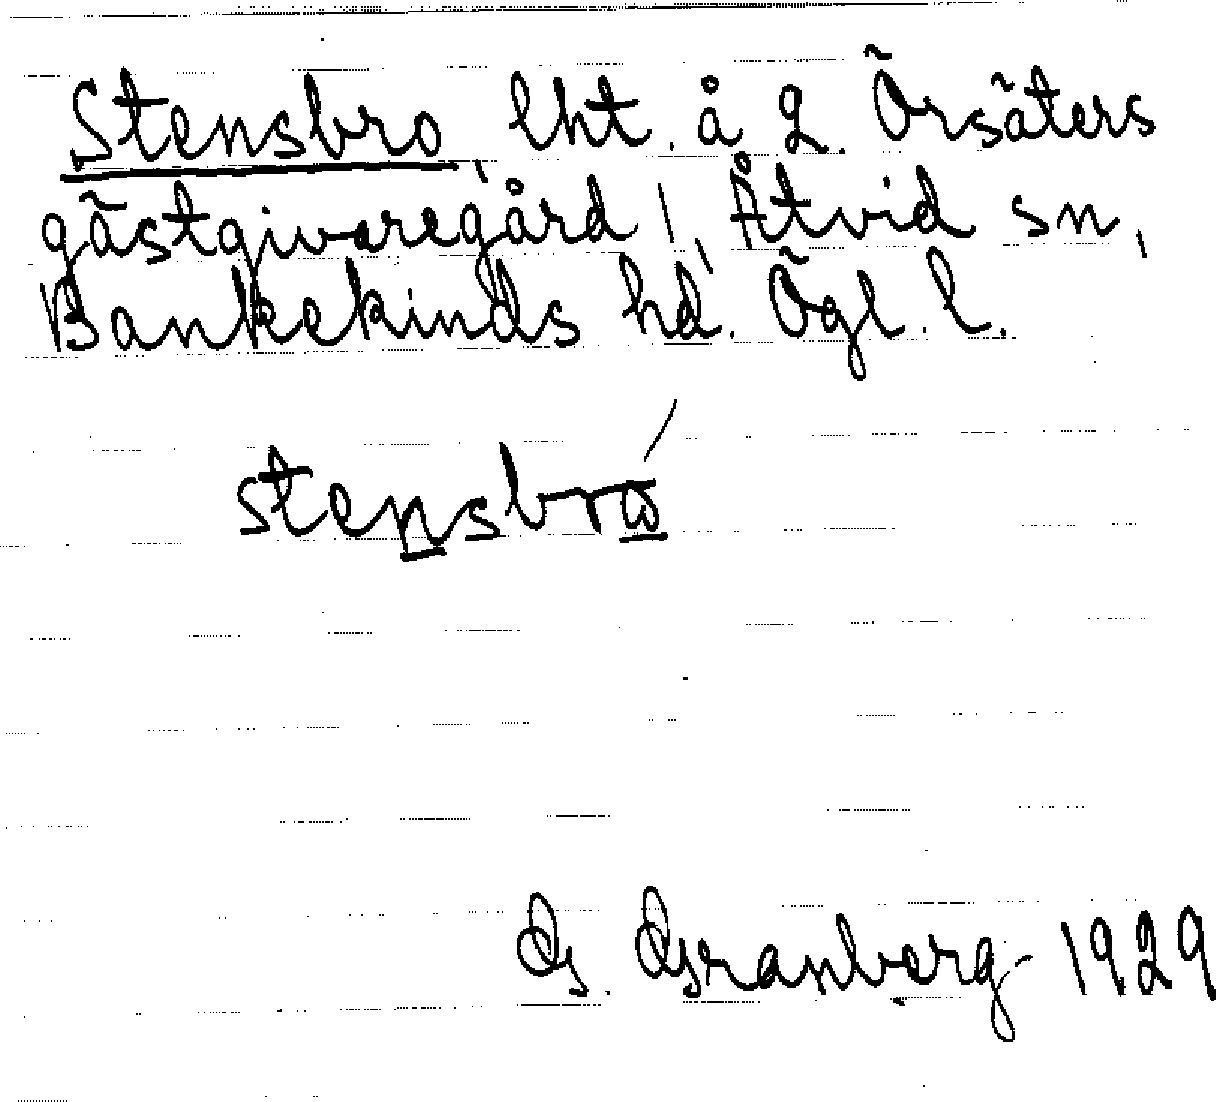 Stensbro, lht. å g. Örsäters
gästgivaregård, Åtvid sn,
Bankekinds hd. Ögl. l.
stensbrω
G. Granberg 1929